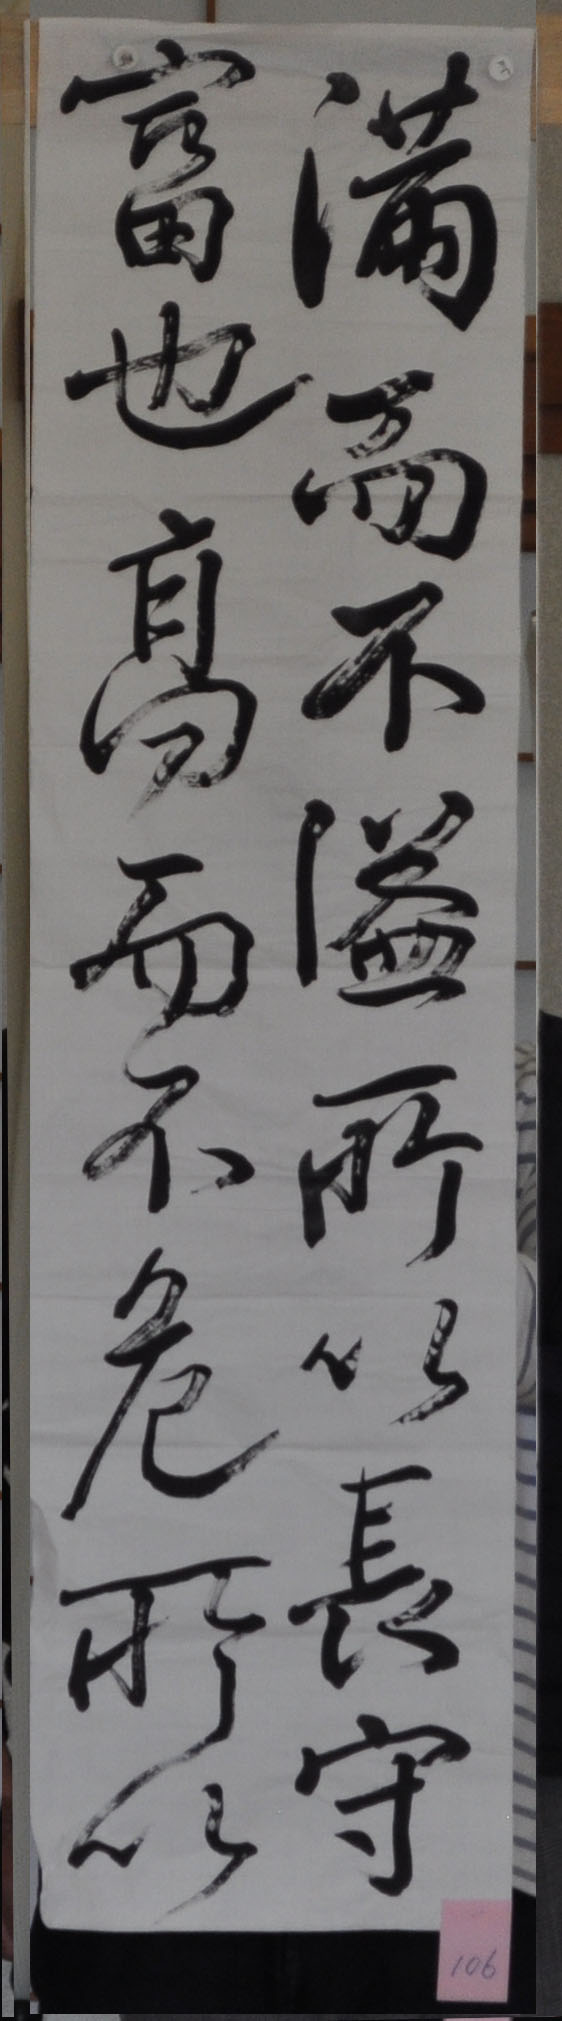 滿而不溢所以長守
富也高而不危所以
106